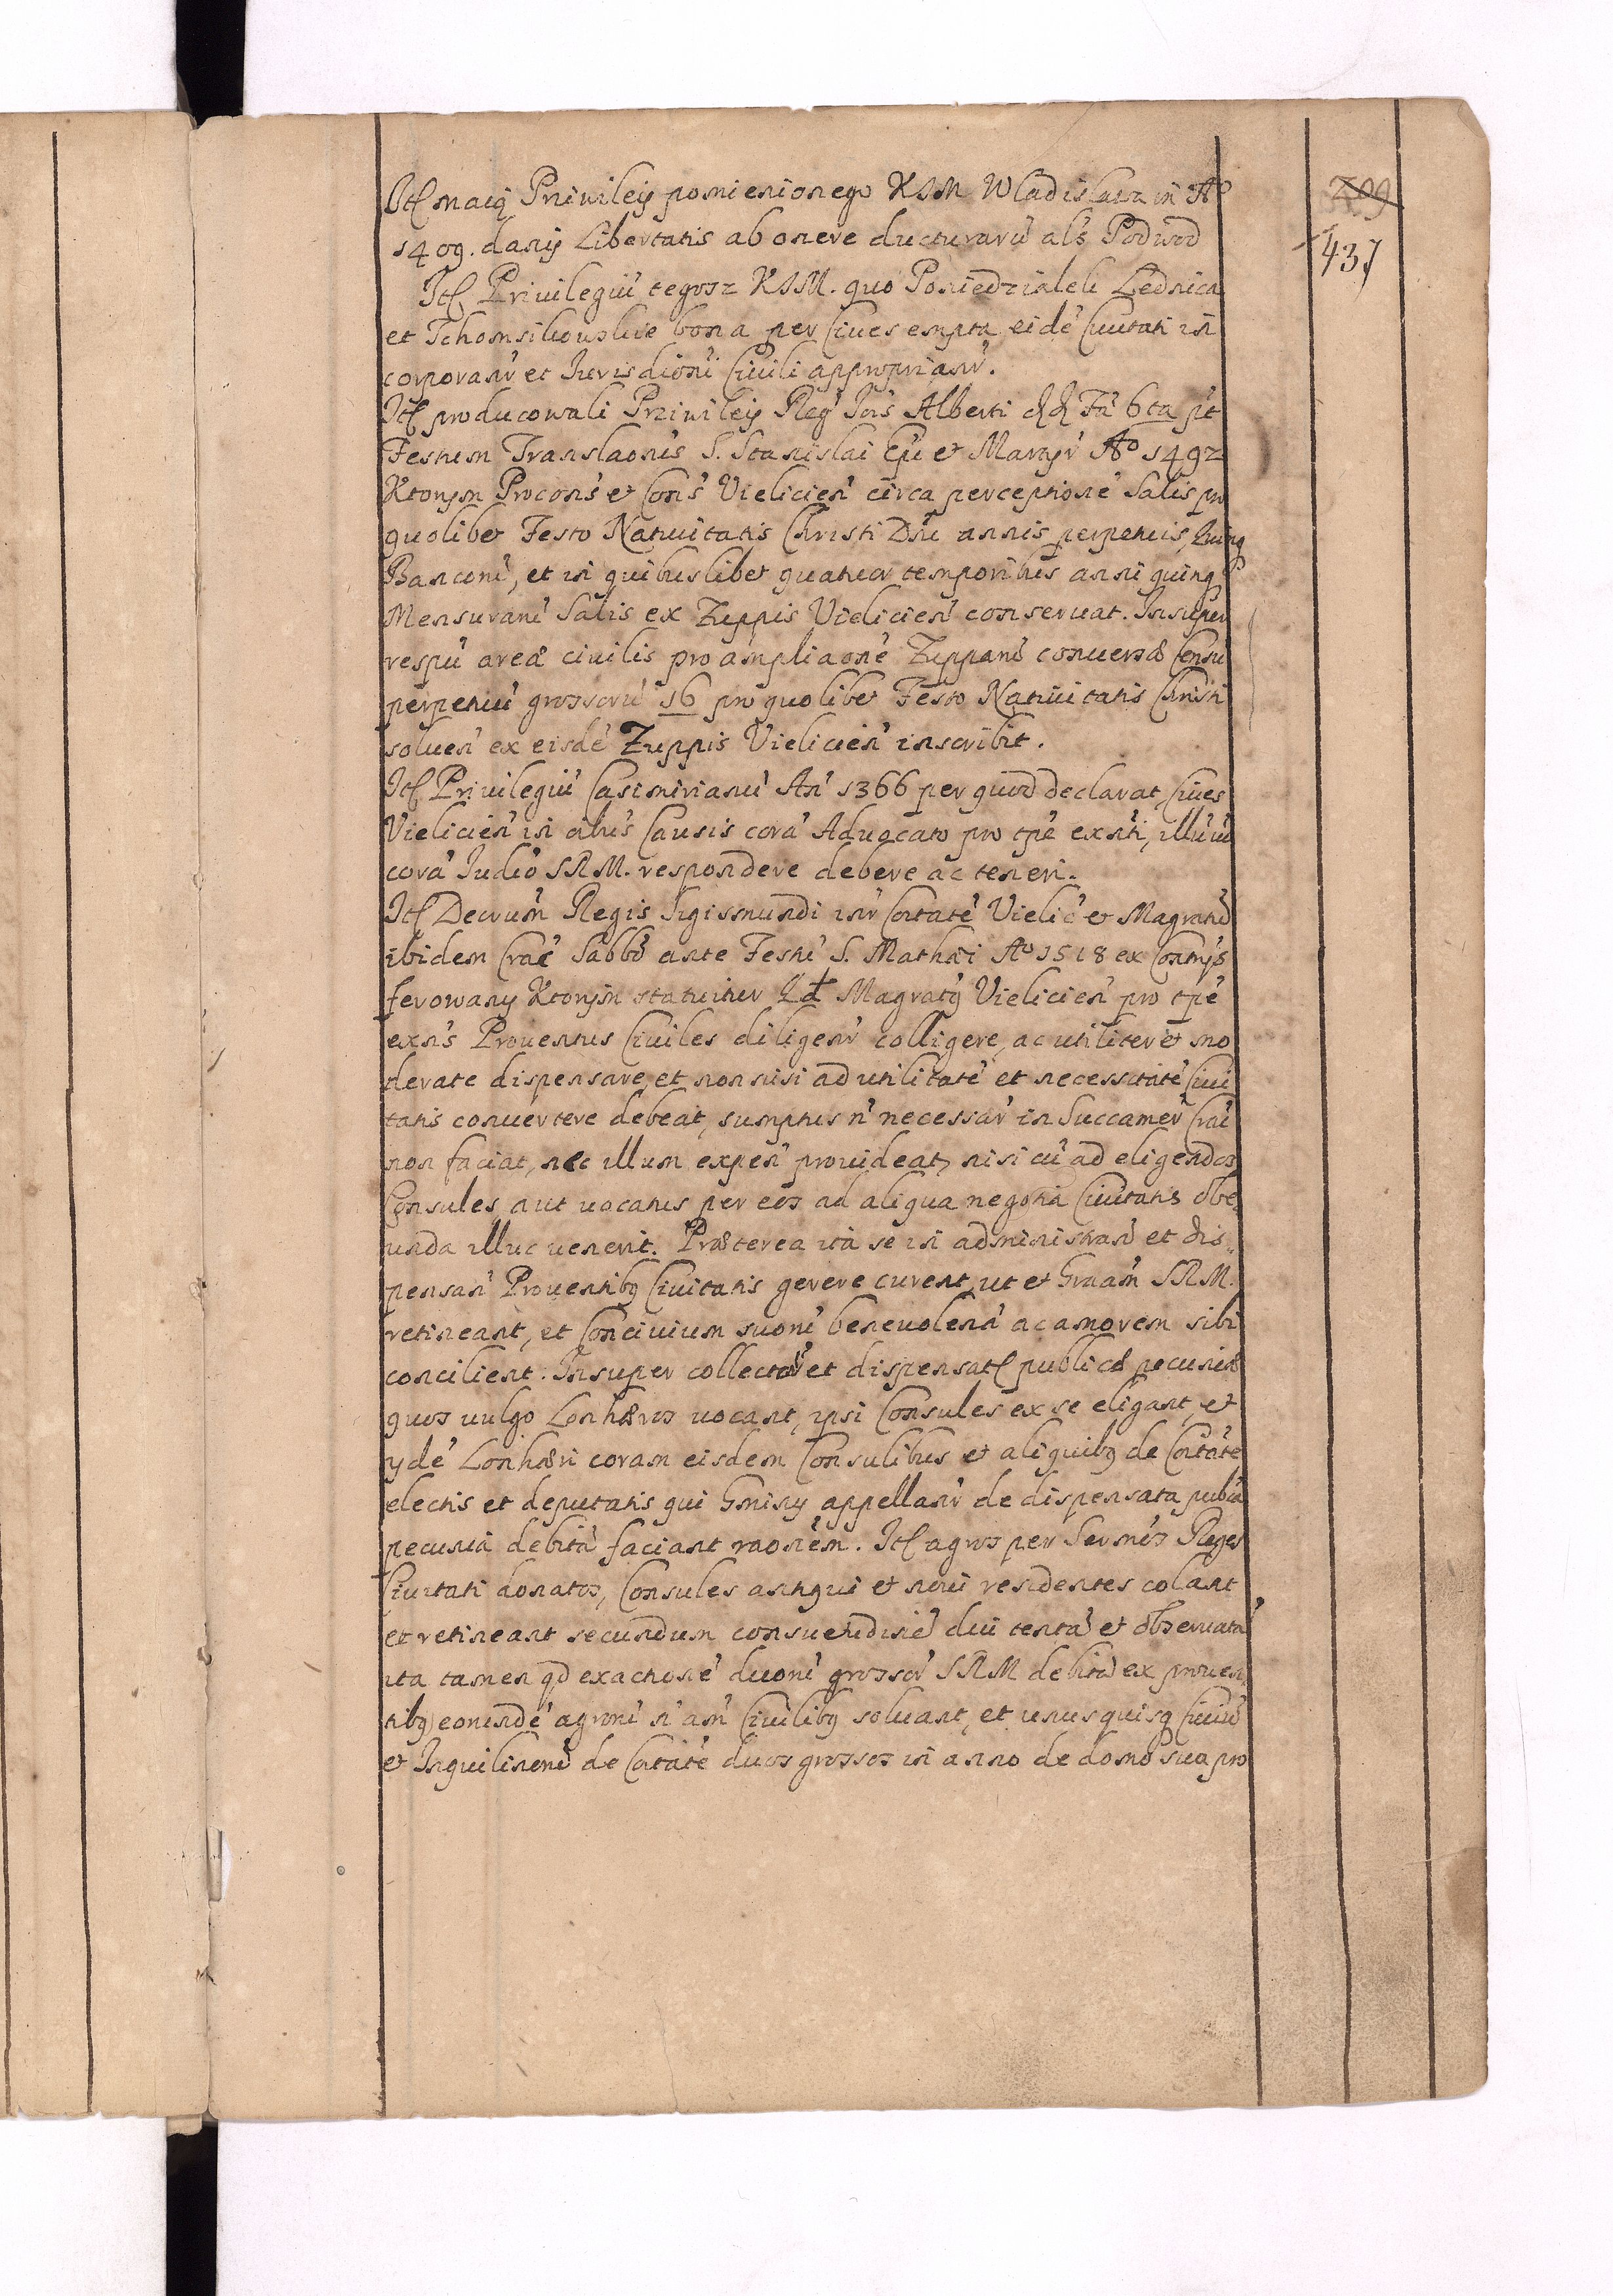 Itē maią Priwiley pomienionego KJM Władisława in Aº
1409. dany Libertatis ab onere ducturarū als Podwod
Itē Privilegiū tegosz KJM. quo Poniedzialeli Lednica
et bona per Cives empta eidē Civitati in
corporanr et Jurisdioni Civili approprianr.
Itē producowali Priwiley Reg Jois Alberti dd Fa 6ta pt
Festum Translaonis S. Stanislai Epi et Martyr Aº 1492
Ktorym Procons et Cons Vieliciēn circa perceptionē Salis pro
quolibet Festo Nativitatis Christi Dni annis perpetuis,
Banconū, et in quibuslibet quatuor temporibus anni quinq
Mensurarū Salis ex Zuppis Vieliciēn conservat. Insuper
respū areæ civilis pro ampliaonē Zupparū conversæ Censū
perpetuū grossorū 16 pro quolibet Festo Nativitatis Christi
solven ex eisdē Zuppis Vieliciēn inscribit.
Itē Privilegiū Casimirianū An 1366 per quod declarat, Cives
Vieliciēn in oibus Causis corā Advocato pro tpē exnti, illū vō
corā Judiō SRM. respondere debere ac teneri.
Itē Decrum Regis Sigismundi intr Cōitatē Vielic et Magratū
ibidem Crac Sabbō ante Festū S. Mathæi Aº 1518 ex Contrijs
ferowany Ktorym statuitur Qd Magratg Vieliciēn pro tpē
exns Proventus Civiles diligentr colligere, ac utiliter et mo
derate dispensare, et non nisi ad utilitatē et necessitatē Civi
tatis convertere debeat, sumptus n necessar in Succamer Crac
non faciat, nec illum expen provideat, nisi cū ad eligendos
Consules, aut vocatus per eos ad aliqua negotia Civitatis obe„
unda illuc venerit. Præterea ita se in administran et dis„
pensan Proventibg Civitatis gerere curent, ut et Gratiam SRM.
retineant, et Concivium suorū benevolentiā ac amorem sibi
concilient. Insuper collector et dispensatē publicæ pecuniæ
quos vulgo Lonhæros vocant, ipsi Consules ex se eligant, et
ydē Lonhæri coram eisdem Consulibus et aliquibg de Cōitate
electis et deputatis qui Gminy appellanr de dispensata publica
pecunia debitā faciant raonem. Itē agros per Sermos Reges
Civitati donatos, Consules antiqui et novi residentes colant
et retineant secundum consuetudinē diu tentā et observatā
ita tamen qd exactionē duorū grossor SRM debitā ex proven„
tibg eorundē agrorū n am Civilibg solvant, et unusquisq Civiū
et Inquilinorū de Cōitatē duos grossos in anno de domo sua pro
437